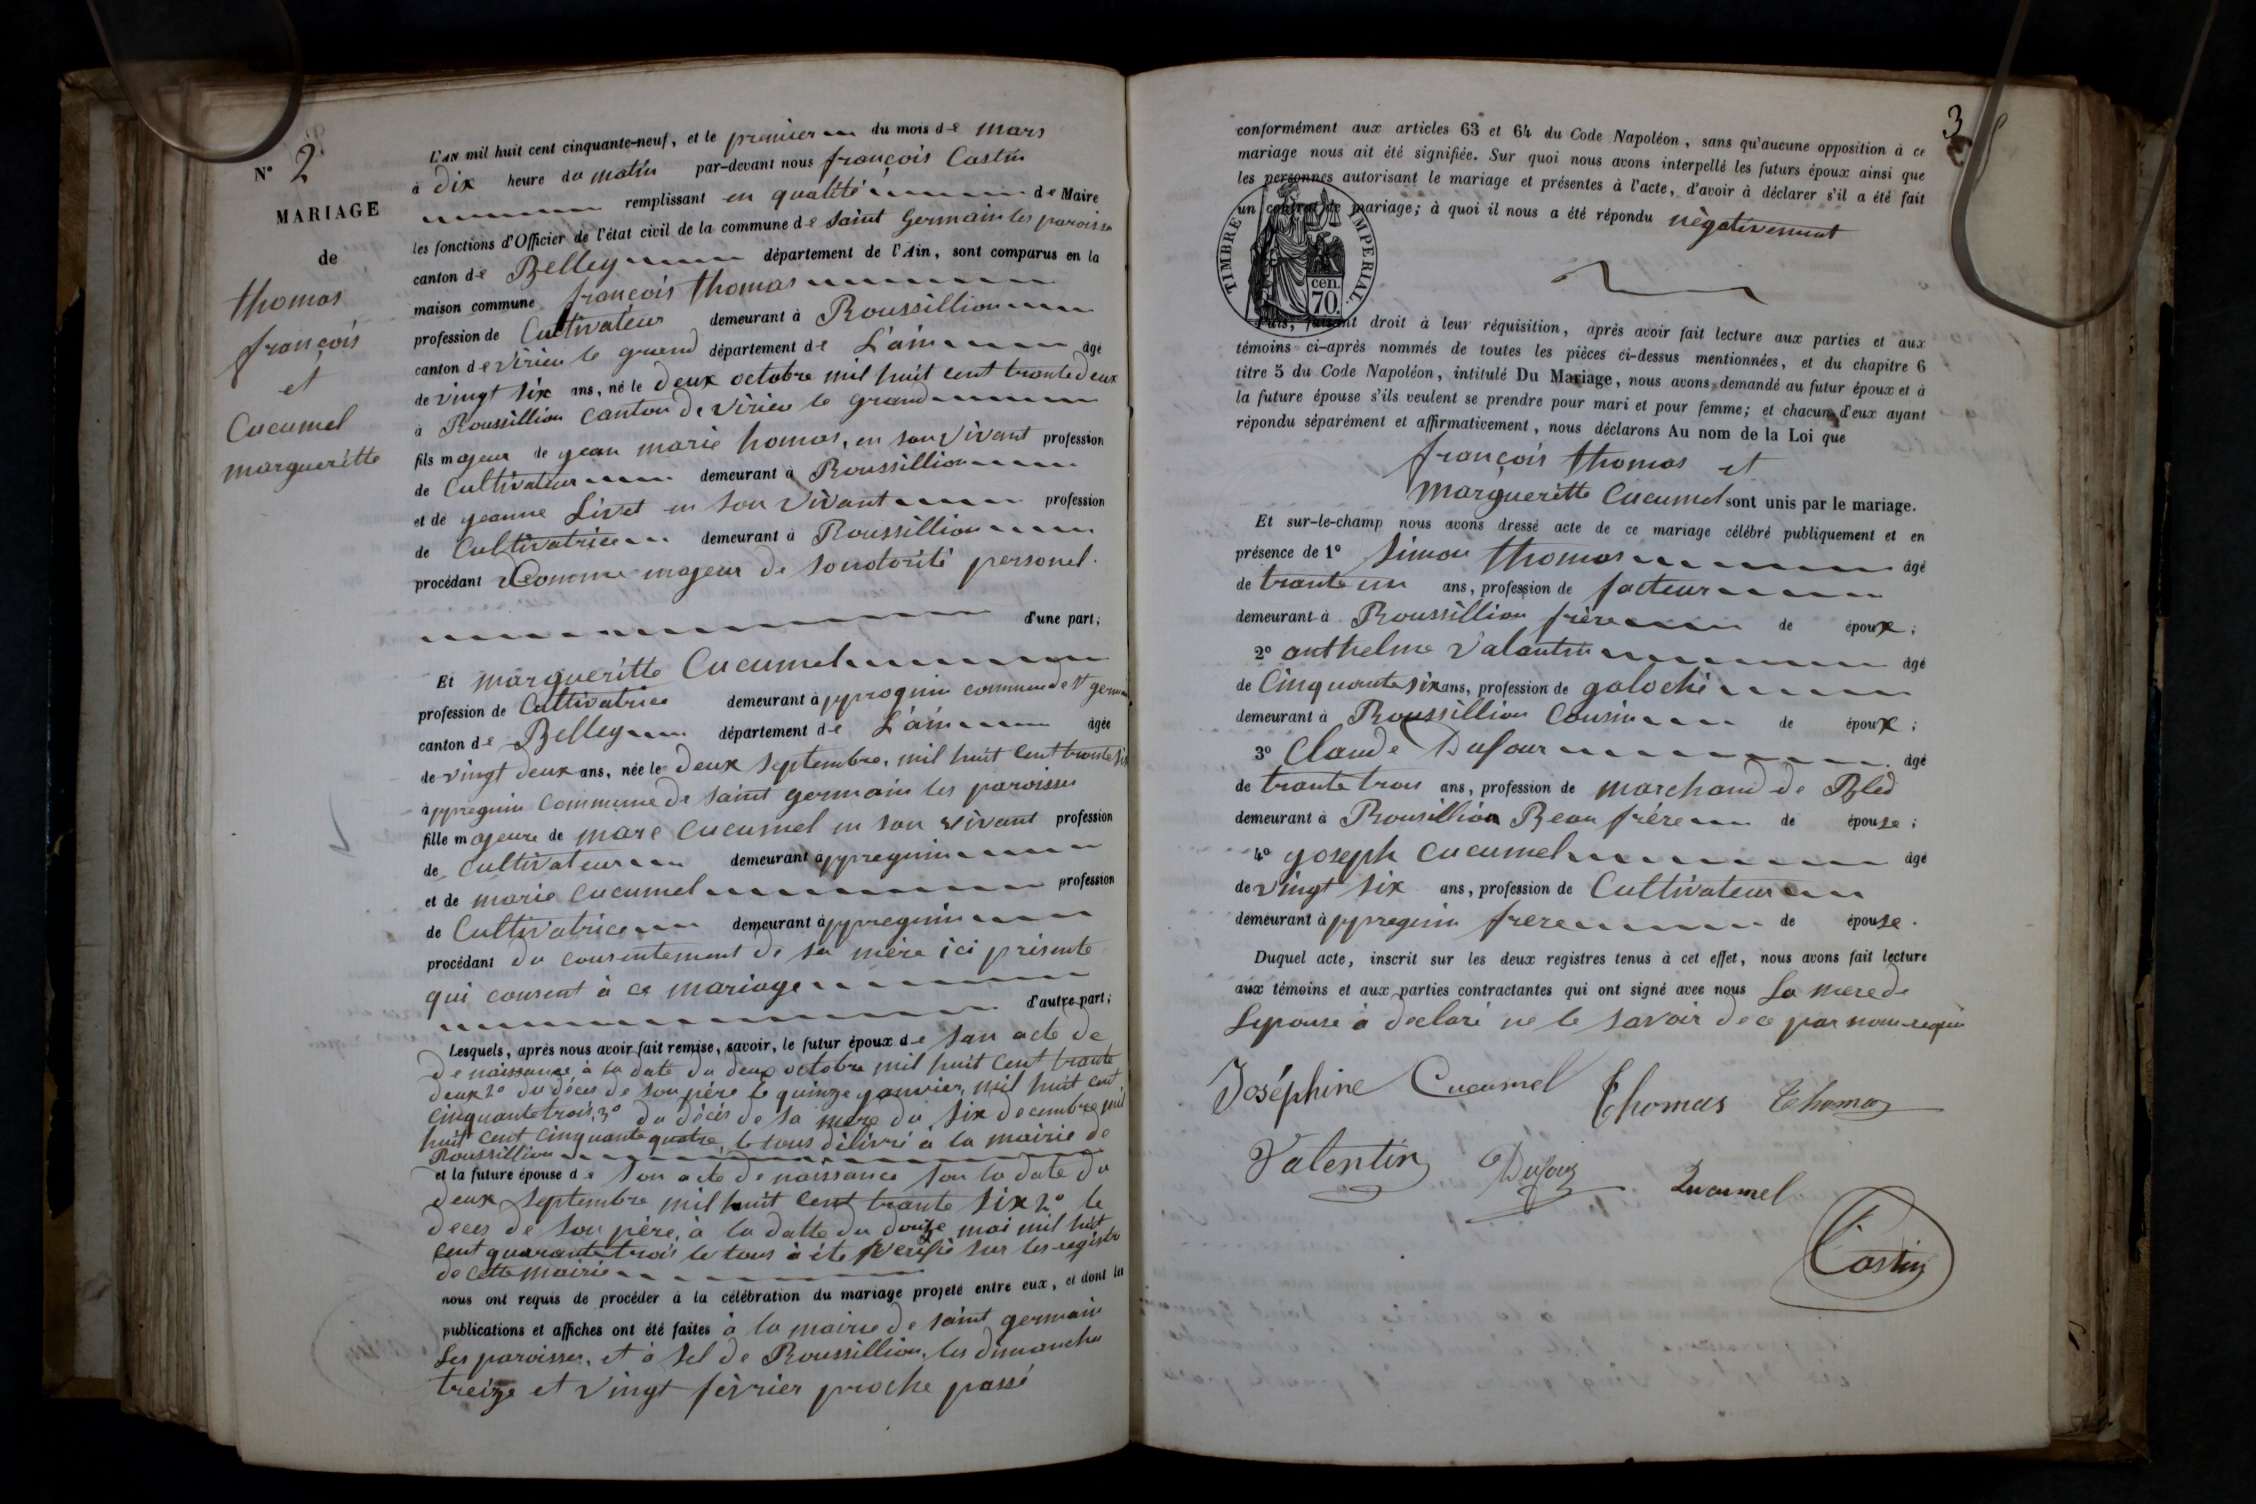 N° 2
MARIAGE
de
thomas
françois
et
Cucumel
margueritte
L'AN mil huit cent cinquante-neuf, et le premier du mois de mars
à dix heure du matin par-devant nous françois Castin
remplissant en qualité de Maire
les fonctions d'Officier de l'état civil de la commune de saint Germain les paroisse
canton de Belley département de l'Ain, sont comparus en la
maison commune françois thomas
profession de Cultivateur demeurant à Roussillion
canton de virieu le grand département de L'ain âgé
de vingt six ans, né le deux octobre mil huit cent trante deux
à Roussillion canton de virieu le grand
fils majeur de jean marie homas, en son vivant profession
de Cultivateur demeurant à Roussillion
et de jeanne Livet en son vivant profession
de Cultivatrice demeurant à Roussillion
procédant Comme majeur de sonotorité personel.
d'une part;
Et margueritte Cucumel
profession de Cultivatrice demeurant à pproguin commune de St germ
canton de Belley département de L'ain âgée
de vingt deux ans, née le deux septembre, mil huit cent trante six
à ppreguin commune de saint germain les paroisses
fille majeure de marc cucumel en son vivant profession
de cultivateur demeurant à ppreguin
et de marie cucumel profession
de Cultivatrice demeurant à ppreguin
procédant du consentement de sa mère ici présente
qui consent à ce mariage
d'autre part;
Lesquels, après nous avoir fait remise, savoir, le futur époux de san acte de
de naissance à la date du deux octobre mil huit cent trante
deux 2° du déces de son père le quinze janvier, mil huit cent
cinquante trois, 3° du décès de sa mere du six decembre mil
huit cent cinquante quatre, le tous délivré à la mairie de
Roussillion
et la future épouse de son acte de naissance sou la date du
deux septembre mil huit cent trante six 2° le
deces de son père, à la datte du douze mai mil huit
cent quarante trois le tous à été verifié sur les registre
de cette mairie
nous ont requis de procéder à la célébration du mariage projeté entre eux, et dont les
publications et affiches ont été faites à la mairie de saint germain
Les paroisses, et à sel de Roussillion, les dimanche
treize et vingt fèvrier proche passé
3
conformément aux articles 63 et 64 du Code Napoléon, sans qu'aucune opposition à ce
mariage nous ait été signifiée. Sur quoi nous avons interpellé les futurs époux ainsi que
les personnes autorisant le mariage et présentes à l'acte, d'avoir à déclarer s'il a été fait
un contrat de mariage; à quoi il nous a été répondu nègativement
TIMBRE IMPERIAL.
cen.
70.
Puis, faisant droit à leur réquisition, après avoir fait lecture aux parties et aux
témoins ci-après nommés de toutes les pièces ci-dessus mentionnées, et du chapitre 6
titre 5 du Code Napoléon, intitulé Du Mariage, nous avons demandé au futur époux et à
la future épouse s'ils veulent se prendre pour mari et pour femme; et chacun d'eux ayant
répondu séparément et affirmativement, nous déclarons Au nom de la Loi que
françois thomas et
margueritte Cucumel sont unis par le mariage.
Et sur-le-champ nous avons dressé acte de ce mariage célébré publiquement et en
présence de 1° Simon thomas âgé
de trante un ans, profession de facteur
demeurant à Roussillion frère de époux;
2° anthelme Valantin âgé
de Cinquante six ans, profession de galoché
demeurant à Roussillion Cousin de époux;
3° Claude Dufour âgé
de trante trois ans, profession de marchand de Bled
demeurant à Rousillion Beau frére de épouse;
4° joseph cucumel âgé
de vingt six ans, profession de Cultivateur
demeurant à ppreguin frere de épouse.
Duquel acte, inscrit sur les deux registres tenus à cet effet, nous avons fait lecture
aux témoins et aux parties contractantes qui ont signé avec nous La mere de
Lepouse à declaré ne le savoir de ce par nous requis
Joséphine Cucumel Thomas Thomas
Valentin Dufour Qucumel
Castin